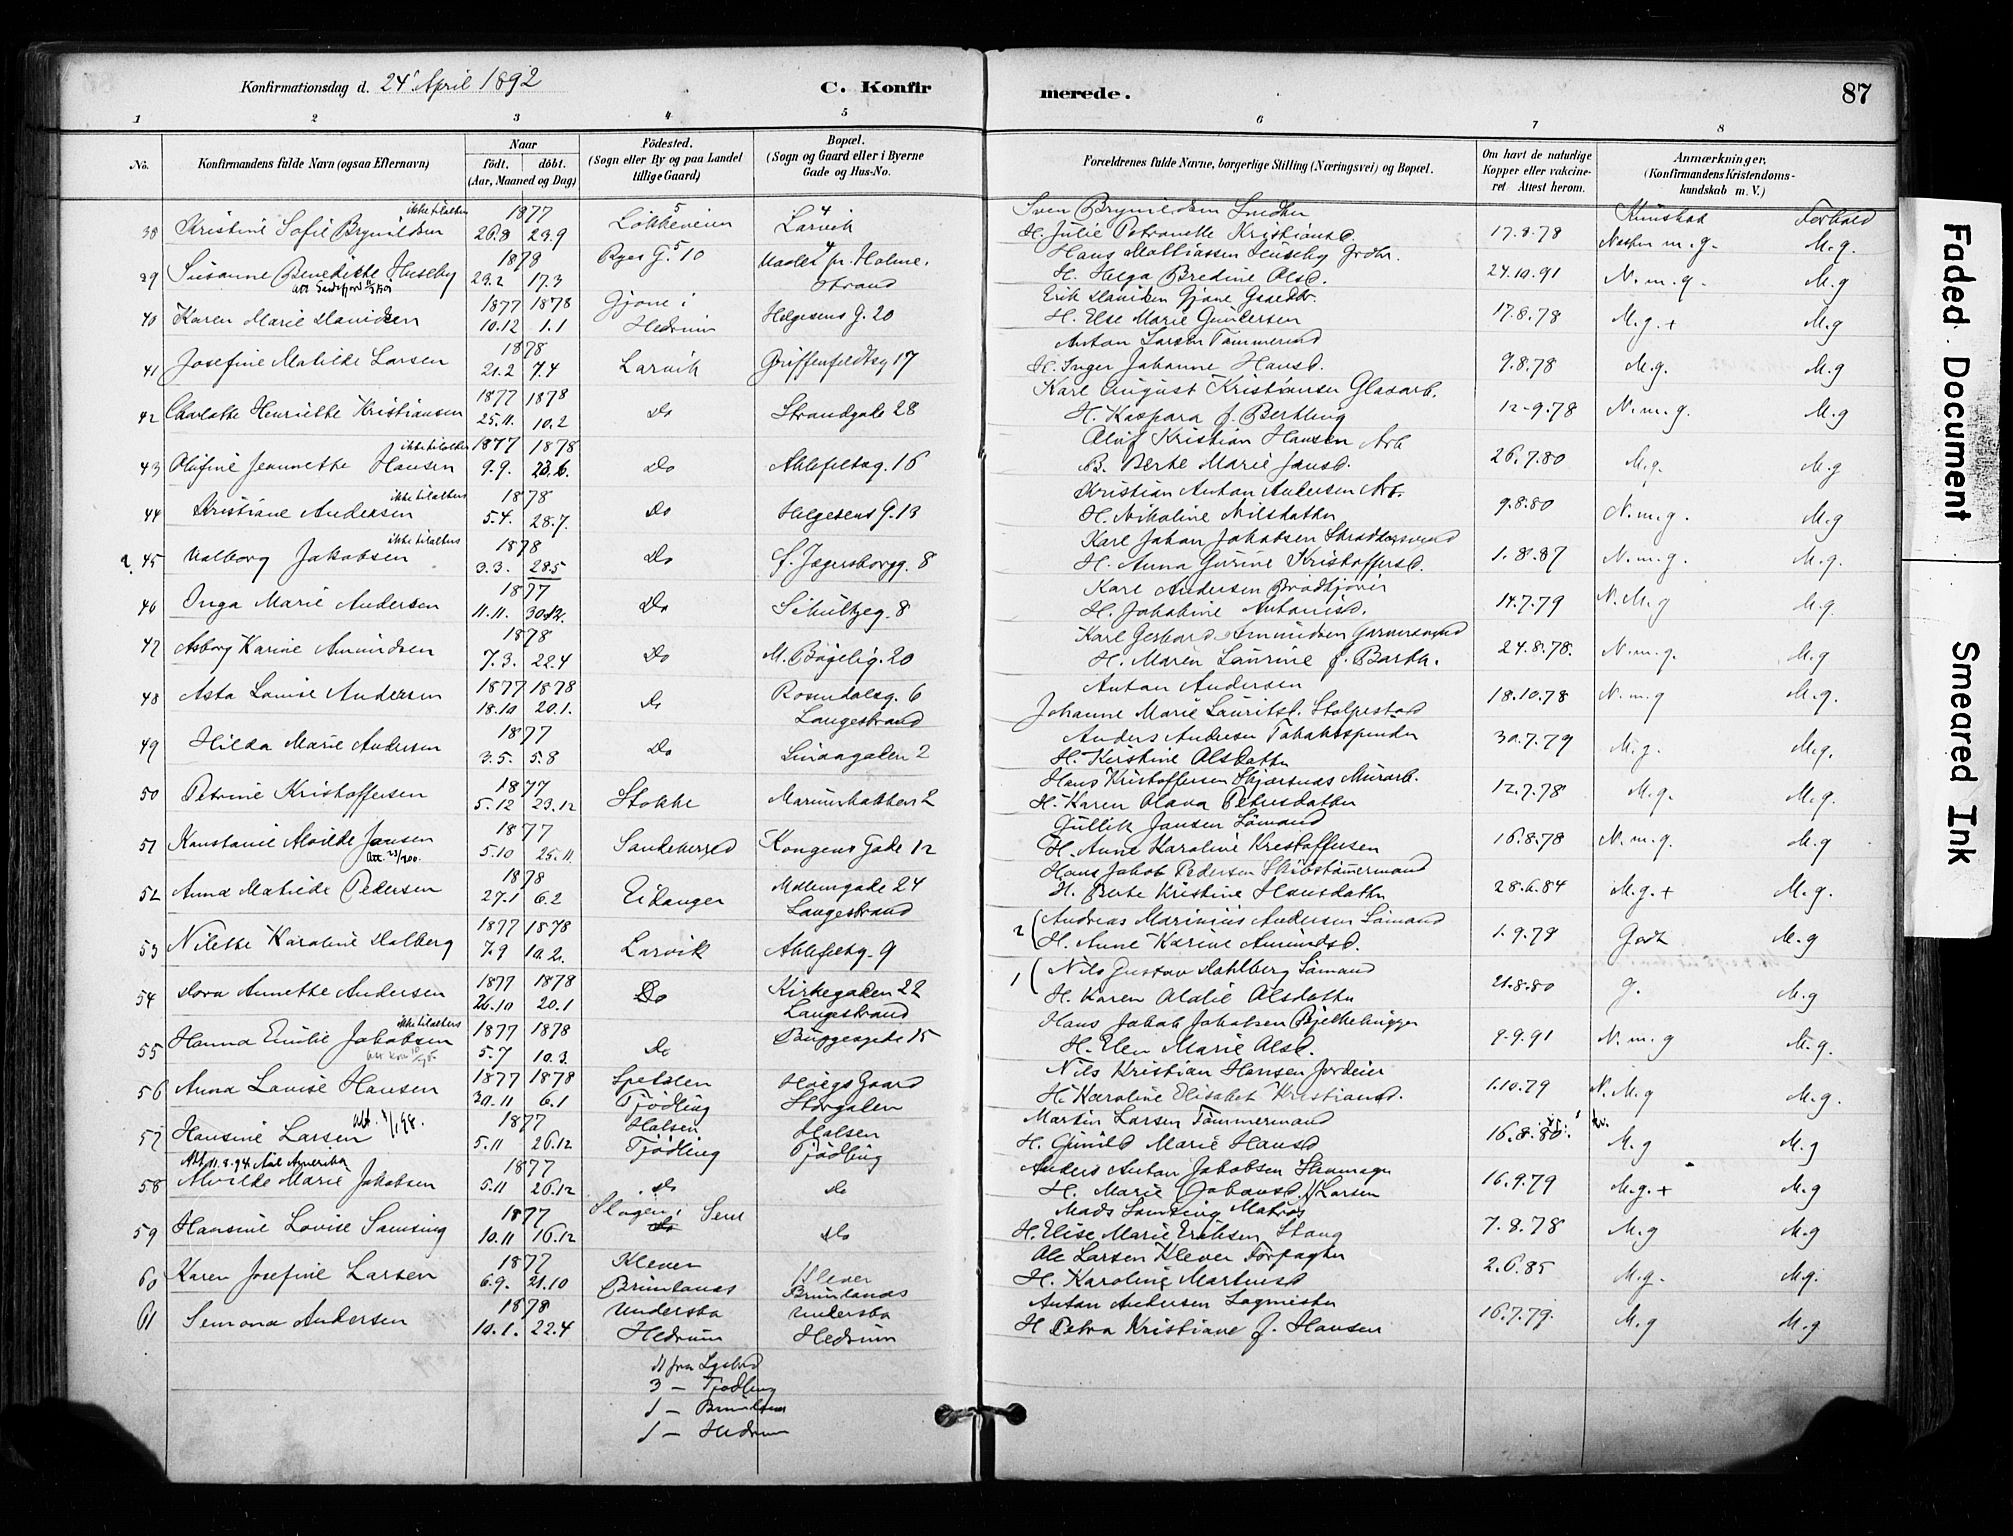 Konfirmationsdag d. 24' April 1892
C. Konfirmerede.
87
1 2 3 4 5 6 7 8
No.
Konfirmandens fulde Navn (ogsaa Efternavn)
Naar født. døbt. (Aar, Maaned og Dag)
Fødested. (Sogn eller By og paa Landet tillige Gaard)
Bopæl. (Sogn og Gaard eller i Byerne Gade og Hus-No.
Forældrenes fulde Navne, borgerlige Stilling (Næringsvei) og Bopæl.
Om havt de naturlige Kopper eller vaccineret Attest herom.
Anmærkninger. (Konfirmandens Kristendomskundskab m. V.)
Kundskab Forhold
38 Kristine Sofie Brynildsen 1877 26.8 23.9 Løkkeveien 5 Larvik 4 Sven Brynildsen Smeder H. Julie Petronelle Kristiansd. 17.8.78 Næsten m.g. M.g.
39 Susanne Benedikte Huseby 1878 23.2 17.3 Ryes G. 10 Hans Mathiassen Huseby H. Helga Bredine Olsd. 24.10.91 N.m.g. M.g
40 Karen Marie Davidsen 1877 1878 10.12 1.1 Gjone i Hedrum Helgesens G. 20 Erik Davidsen Gjone Gaardbr. H. Else Marie Gundersen 17.8.78 M.g.+ M.g
41 Josefine Matilde Larsen 1878 21.2 7.4 Larvik Griffenfeldtsg 17 Anton Larsen Tømmermd H. Inger Johanne Hansd. 9.8.78 M.g. M.g
42 Charlotte Henriette Kristiansen 1877 1878 25.11. 10.2 Do Strandgade 28 Karl August Kristiansen Glasarb. H. Kaspara f. Bertling 12-9.78 N.m.g. M.g
43 Olufine Jeannette Hansen 1877 1878 9.9. 23.6. Do Ahlefeltsg. 16 Oluf Kristian Hansen Arb B. Berte Marie Jansd. 26.7.80 M.g. M.g
44 Kristiane Andersen 1878 5.4. 28.7. Do Helgesens G. 13 Kristian Anton Andersen Arb. H. Nikoline Nilsdatter 9.8.80 N.m.g. M.g
45 Valborg Jakobsen 1878 3.3. 28.5 Do f. Jegersborgg. 8 Karl Johan Jakobsen H. Anna Gurine Kristoffersd. 1.8.87 N.m.g. M.g.
46 Inga Marie Andersen 1877 11.11. 30.12. Do Schultzeg. 8 Karl Andersen Brødkjører H. Jakobine Antonisd. 14.7.79 N.M.g M.g.
47 Asborg Karine Amundsen 1878 7.3. 22.4 Do M. Bøgelig. 20 Karl Gerhard Amundsen Garversvend H. Maren Laurine f. Barth. 24.8.78. N.m.g. M.g
48 Asta Louise Andersen 1877 1878 18.10 20.1. Do Rosendalsg. 6 Langestrand Anton Andersen Johanne Marie Lauritsd. Stolpestad 18.10.78 N.m.g M.g.
49 Hilda Marie Andersen 1877 3.5. 5.8 Do Lindagaden 2 Anders Andersen Tobakspinder H. Kirstine Olsdatter 30.7.79 M.g. M.g.
50 Petrine Kristoffersen 1877 5.12 23.12 Stokke Marumbakken 2 Hans Kristoffersen Skjærsnæs Murarb. H. Karen Olava Petersdatter 12.7.78 M.g. M.g.
51 Konstanse Alvilde Jansen 1877 5.10 25.11 Sandeherred Kongens Gade 12 Gullik Jansen Sømand H. Anne Karoline Kristoffersen 16.8.78 N.m.g. M.g
52 Anna Matilde Pedersen 1878 27.1 6.2 Eidanger Møllengade 24 Langestrand Hans Jakob Pedersen Skibstømmermand H. Berte Kristine Hansdatter 28.6.84 M.g.+ M.g.
53 Nilette Karoline Dalberg 1877 1878 7.9 10.2. Larvik Ahlefeltsg. 9 2( Andreas Marinius Andersen Sømand H. Anne Karine Amundsd. 1.9.78 Godt M.g
54 Dora Annette Andersen 1877 1878 26.10 20.1 Do Kirkegaden 22 Langestrand 1( Nils Gustav Dahlberg Sømand H. Karen Olalie Olsdatter 21.8.80 g. M.g
55 Hanna Emilie Jakobsen 1877 1878 5.7 10.3. Do Bøuggesgade 15 Hans Jakob Jakobsen Bjelkehugger H. Elen Marie Olsd. 9-9.91 N.m.g M.g.
56 Anna Lovise Hansen 1877 1878 30.11 6.1 Spetalen Tjødling Høegs Gaard Storgaden Nils Kristian Hansen Jordeier H. Karoline Elisabet Kristiansd. 1.10.79 N.M.g M.g.
57 Hansine Larsen 1877 5.11 26.12 Halsen Tjødling Halsen Tjødling Martin Larsen Tømmermand H. Gunild Marie Hansd 16.8.80. M.g M.g
Att 11.8.94 til Amerika
58 Alvilde Marie Jakobsen 1877 5.11 26.12 Do Do Anders Anton Jakobsen H. Marie (Johansd.) Larsen 16.9.79 M.g.+ M.g
59 Hansine Lovise Samsing 1877 10.11 16.12 Slagen i Sem Do Mads Samsing H. Elise Marie Eriksen Stang 7.8.78 M.g M.g
60 Karen Josefine Larsen 1877 6.9. 21.10 Kleven Brunlanæs Klever Brunlanæs Ole Larsen Klever Forpagter H. Karoline Martinsd 2.6.85 M.g. M.g.
61 Semona Andersen 1878 10.1. 22.4 Undersbo Hedrum Undersbo Hedrum Anton Andersen Sagmester H. Petra Kristiane f. Hansen 16.7.79. M.g M.g
3 — Tjødling
1 — Brunlanæs
1 — Hedrum
Faded Document
Smeared Ink